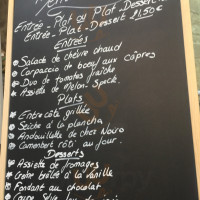 Menu
Entrée - Plat et Plat - Dessert
Entrée - Plat - Dessert 21.50€
Entrées
Salade de chèvre chaud
Carpaccio de bœuf aux câpres
Duo de tomates fraîche
Assiette de Melon. Speck.
Plats
Entre côte grillée
Seiche à la plancha
Andouillette de chez Nouro
Camembert rôti au four.
Desserts
Assiette de fromages
Crème brûlée à la Vanille
Fondant au chocolat
Coupe